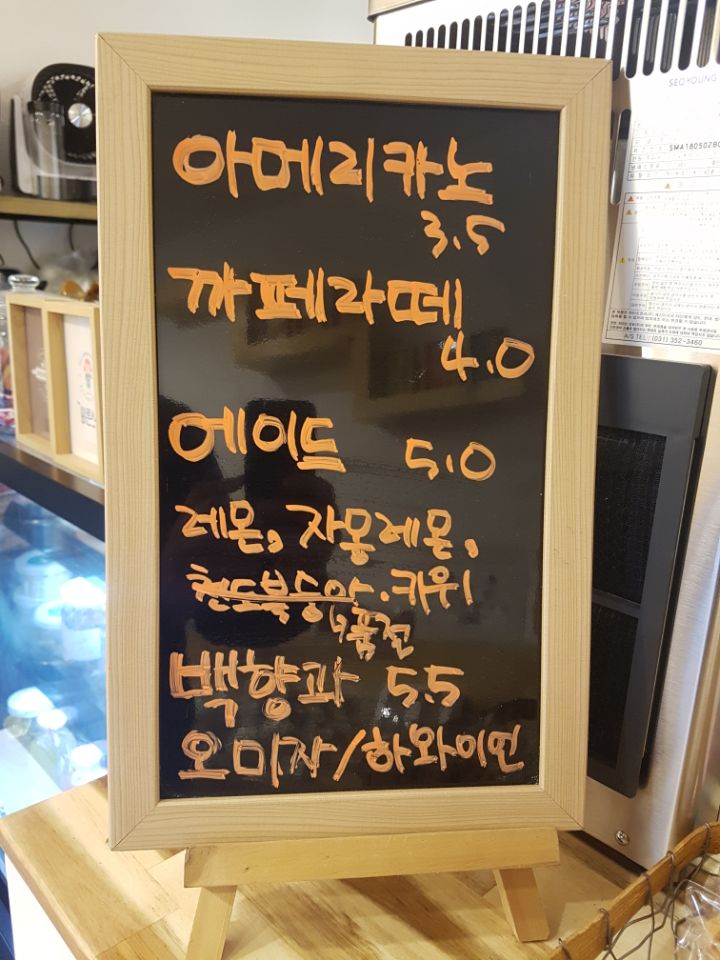 아메리카노
3.5
까페라떼
4.0
에이드 5.0
레몬, 자몽레몬,
천도복숭아.키위
↳품절
백향과 5.5
오미자/하와이언
SEOYOUNG
SMA18050280
A/S TEL : (031) 352-3460